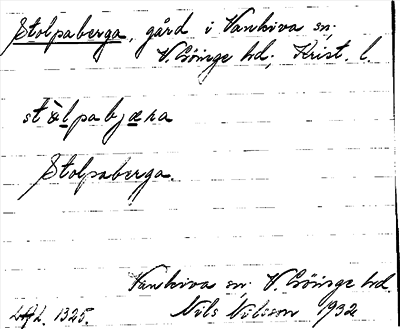 Stolpaberga, gård i Vankiva sn,
V. Göinge hd, Krist. l.
Stolpaberga.
Vankiva sn, V. Göinge hd.
1325.
Nils Nilsson 1932